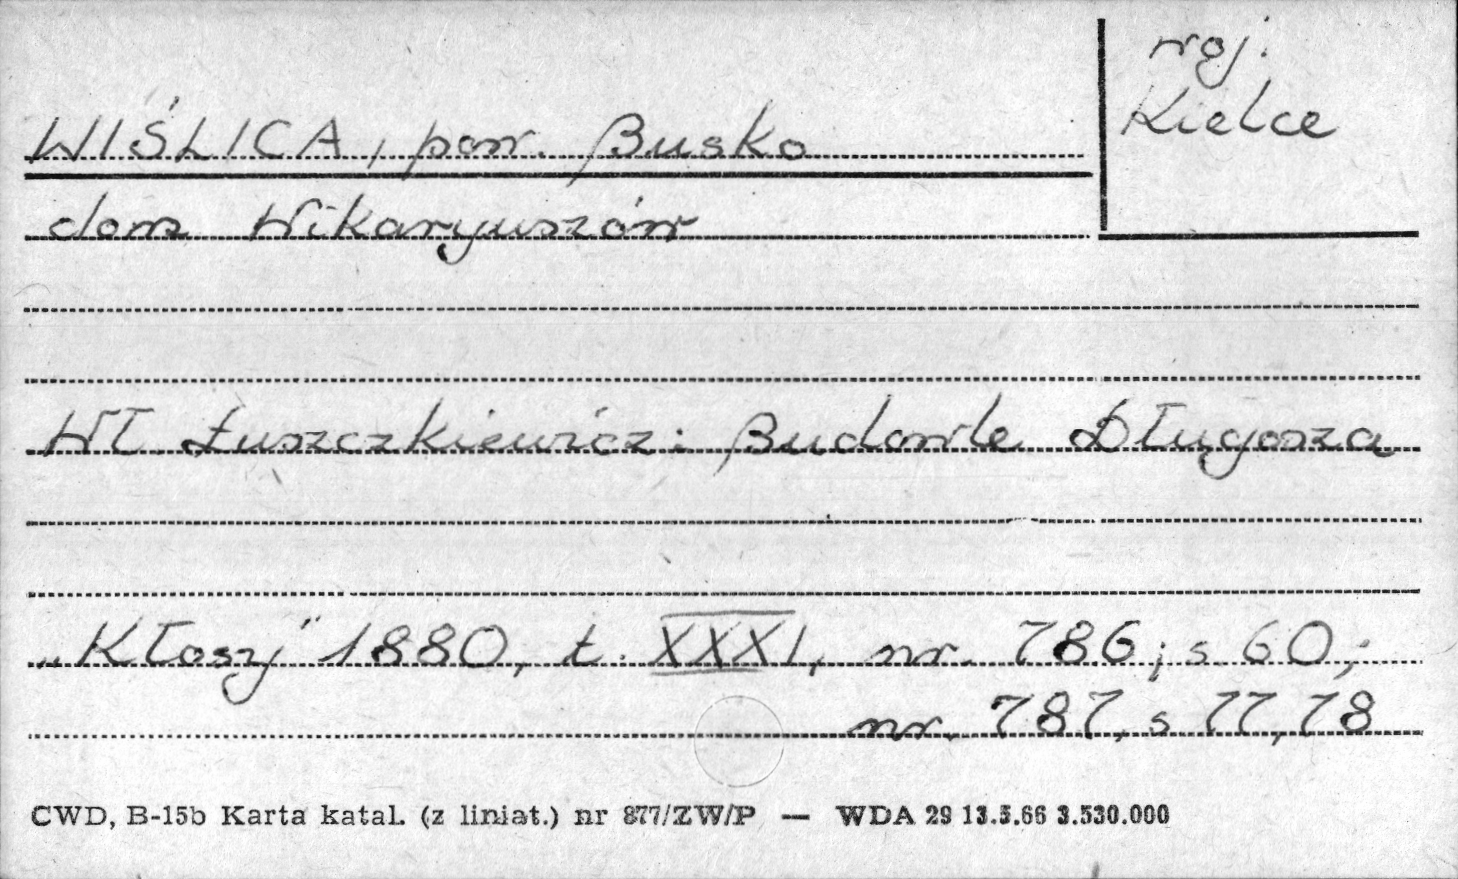 woj.
Kielce
WIŚLICA, pow. Busko
dom Wikaryuszów
Wł. Łuszczkiewicz: Budowle Długosza
„Kłosy" 1880, t. XXXI, nr. 786; s 60;
nr. 787, s 77, 78
CWD, B-15b Karta katal. (z liniat.) nr 877/ZW/P — WDA 29 13.5.66 3.530.000